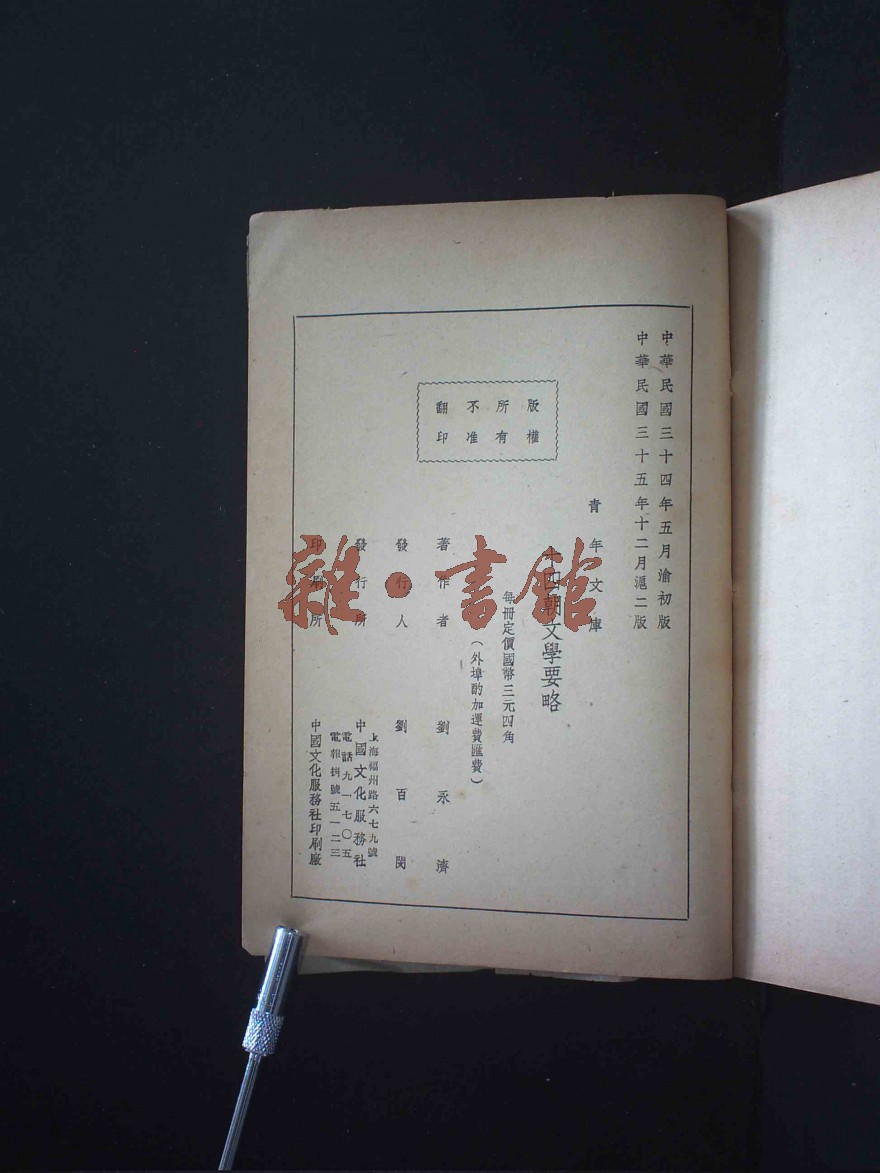 中華民國三十四年五月渝初版
中華民國三十五年十二月滬二版
青年文庫
十四朝文學要略
每冊定價國幣三元四角
（外埠酌加運費匯費）
版權
所有
不准
翻印
著作者 劉永濟
發行人 劉百閔
發行所 中國文化服務社
上海福州路六七九號
電話九一七〇五
電報掛號五一二三
印刷所 中國文化服務社印刷廠
雜·書館